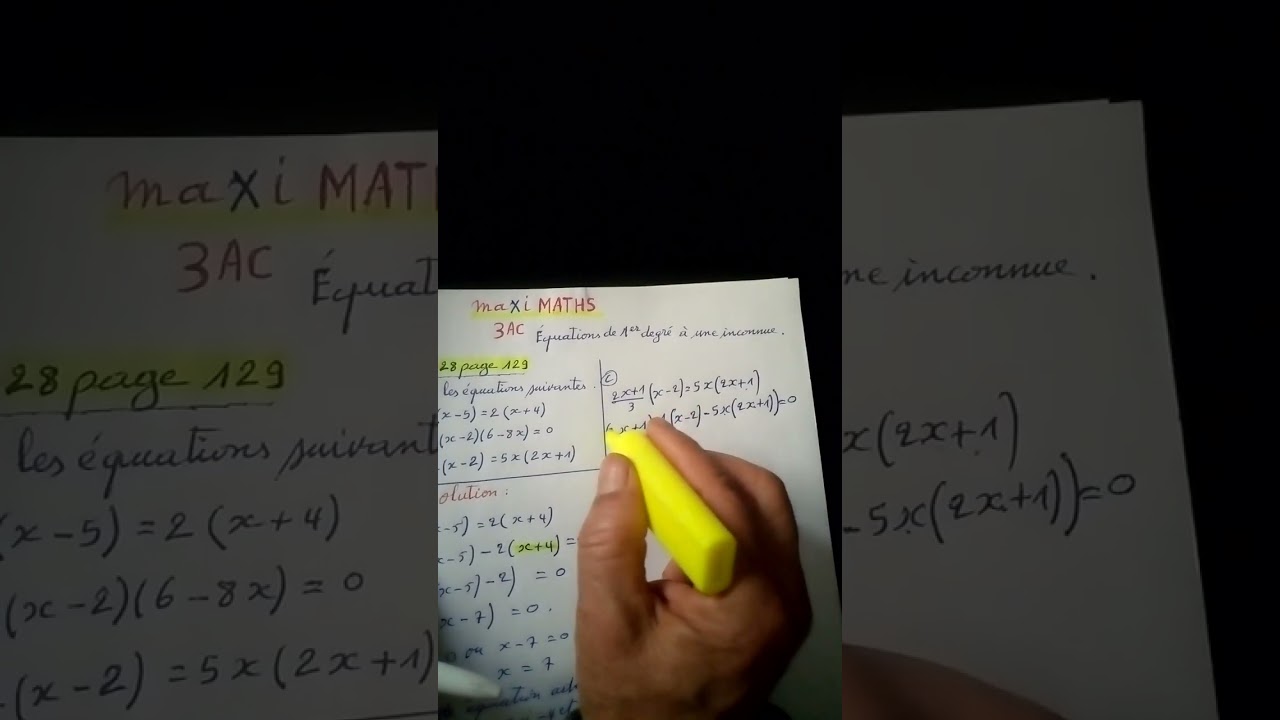 maxi MATHS
3AC Équations de 1er degré à une inconnue.
28 page 129
les équations suivantes.
(x-5) = 2(x+4)
(x-2)(6-8x) = 0
(x-2) = 5x(2x+1)
C
2x+1/3 (x-2) = 5x(2x+1)
(x-2) - 5x(2x+1)) = 0
olution :
x-5) = 2(x+4)
x-5) - 2(x+4) =
x-5) - 2) = 0
x-7) = 0.
ou x-7 = 0
x = 7
équation
maxi MAT
3AC Équat
28 page 129
les équations suivant
(x-5) = 2(x+4)
(x-2)(6-8x) = 0
(x-2) = 5x(2x+1)
ne inconnue.
x(2x+1)
- 5x(2x+1)) = 0